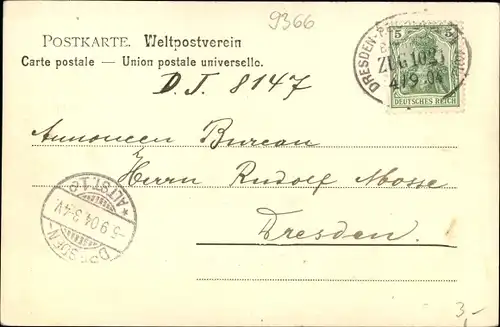 9366
POSTKARTE. Weltpostverein
Carte postale — Union postale universelle.
D.T. 8147
DRESDEN-
ZUG 102
4/9 04
5 5
DEUTSCHES REICH
Annoncen Bureau
Herrn Rudolf Mosse
Dresden.
DRESDEN-
-5.9.04.3-4V.
*ALTST.1.c
3,-